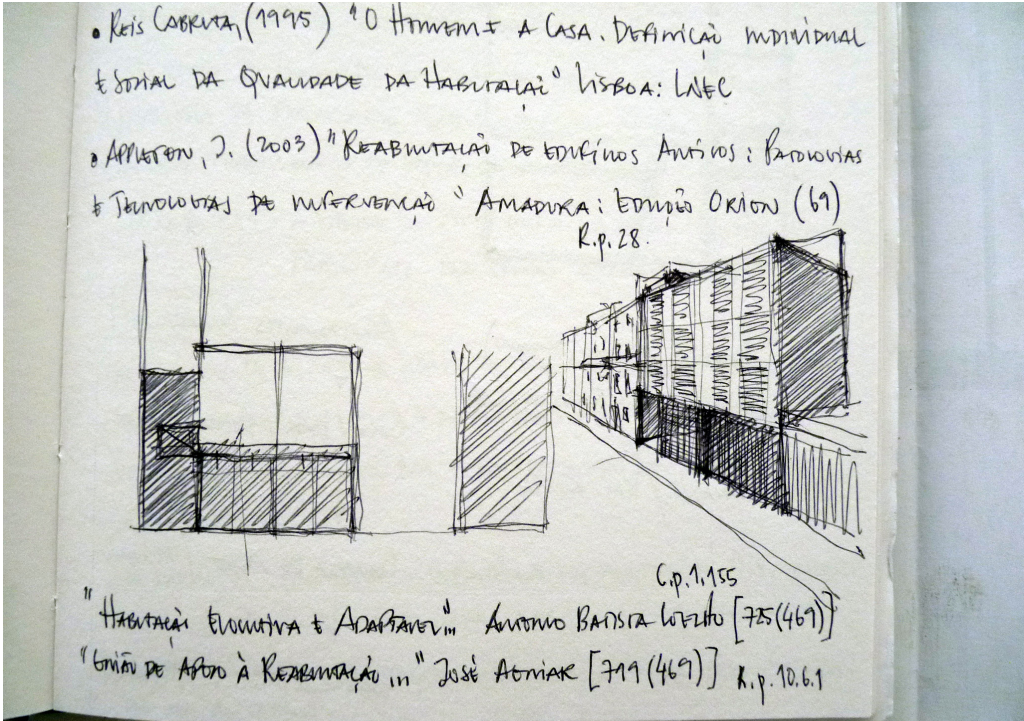 • Reis Cabrita, (1995) "O Homem e a Casa. Definição individual
e social da Qualidade da Habitação" Lisboa: LNEC
• Appleton, J. (2003) "Reabilitação de edifícios Antigos: Patologias
e Tecnologias de intervenção" Amadora: Edição Orion (69)
R.p. 28.
C.p. 1.155
"Habitação Evolutiva e Adaptável..." António Batista Coelho [725(469)]
"Guião de Apoio à Reabilitação..." José Aguiar [719(469)] R.p. 10.6.1